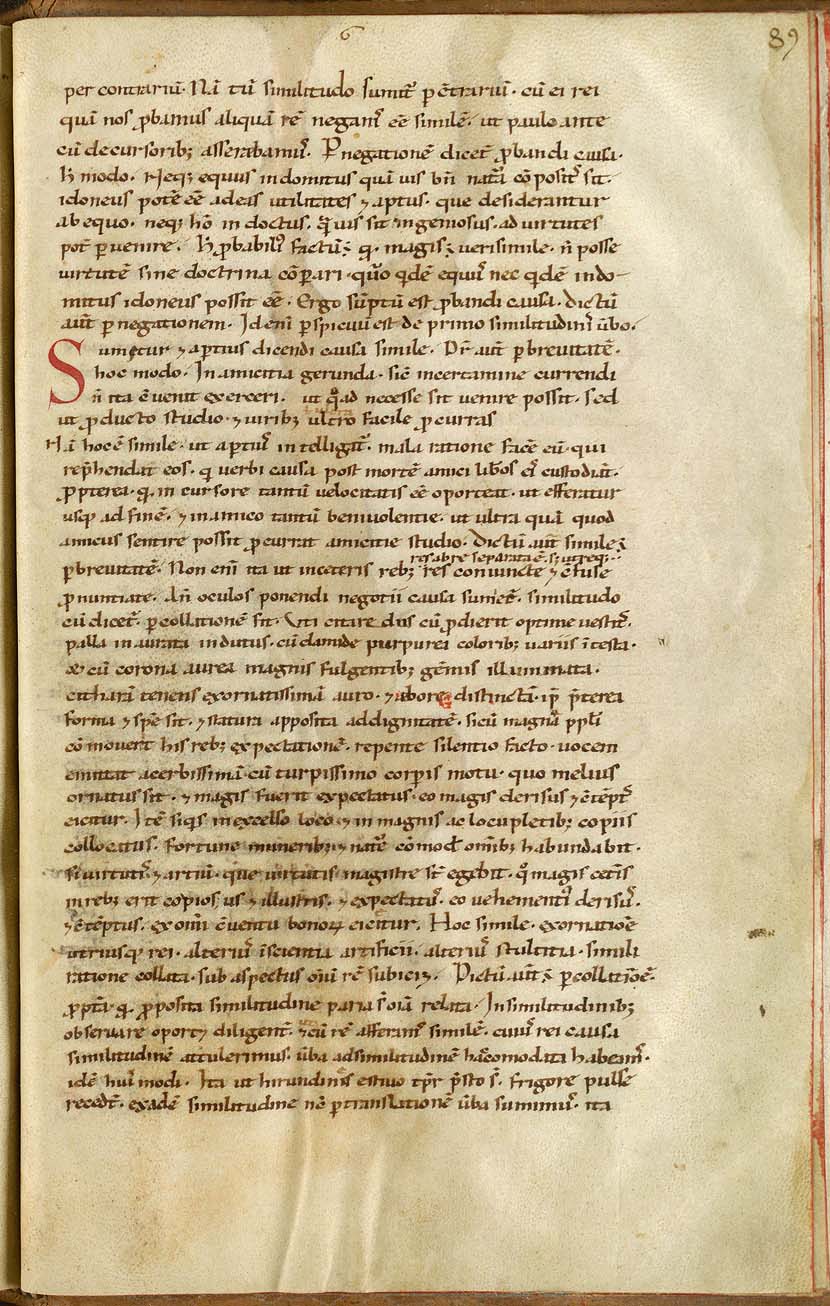 6
89
per contrariū. Nā tū similitudo sumit᷑ p c̄trariū. cū ei rei
quā nos ꝓbamus aliquā rē negam᷒ eē similē. ut paulo ante
cū de cursorib; asserabam᷒. P negationē dicet᷑ ꝓbandi causa.
h̄ modo. Neq; equus indomitus quā uis bn̄ nat᷒ā cōposit᷒ sit.
idoneus potē eē adeas utilitates ⁊ aptus. que desiderantur
ab equo. neq; hō in doctus. quis sit ingeniosus. ad uirtutes
pot᷑ puenire. H ꝓbabili᷒ factū; q. magis; uerisimile. n̄ posse
uirtutē sine doctrina cōparari. qn̄o qdē equ᷒ nec qdē indo
mitus idoneus possit eē. Ergo sūptū est ꝓbandi causa. dictū
aut̄ p negationem. Id eni pspicuū est de primo similitudinis ūbo.
Sumetur ⁊ aptius dicendi causa simile. Dr̄ aut̄ p breuitatē.
hoc modo. In amicitia gerunda. sic̄ incertamine currendi
n̄ ita c̄uenit exerceri. ut qad necesse sit uenire possit. sed
ut ꝓducto studio. ⁊ uirib; ultro facile ꝓcurras
Nā hoc ē simile. ut aptiu᷒ intelligat᷑. mala ratione facē eū. qui
rep̄hendat eos. q uerbi causa post mortē amici libos ei᷒ custodiāt.
ꝓpterea. q. in cursore tantū uelocitatis eē oporteat. ut efferatur
usq; ad finē. ⁊ in amico tantū beniuolentie. ut ultra quā quod
amicus sentire possit ꝓcurrat amicitie studio. Dictū aut̄ simile;
res abre separata ē.
p breuitatē. Non eni ita ut inceteris reb; res coniuncte ⁊ c̄fuse
ꝓnuntiate. An̄ oculos ponendi negotii causa sumet᷑. similitudo
cū dicet᷑. p collationē sit. Uti citare dus cū ꝓdierit optime uestit᷒.
palla inaurata indutus. cū clamide purpurea colorib; uariis ītesta.
& cū corona aurea magnis fulgentib; gēmis illuminata.
citharā tenens exornatissimā auro. ⁊ abore distinctā. ip̄ p̄terea
forma ⁊ spē sit. ⁊ statura apposita addignitatē. sicū magnā ppl̄i
cōmouerit his reb; expectationē. repente silentio facto. uocem
emittat acerbissimā. cū turpissimo corpis motu. quo melius
ornatus sit. ⁊ magis fuerit expectatus. eo magis derisus ⁊ c̄tēpt᷒
eicitur. Itē siqs in excelso loco. ⁊ in magnis ac locupletib; copiis
collocatus. fortune munerib; ⁊ nat᷒ē cōmodis omīb; habundabit.
si uirtutis ⁊ artiū. que uirtutis magistre st̄ egebit. q magis cet̄is
in reb; erit copiosus ⁊ illustris. ⁊ expectat᷒. eo uehementi᷒ deris᷒.
⁊ c̄tēptus. ex omī c̄uentu bonoꝝ eicitur. Hoc simile. exornatiōe
utriusq; rei. alteri᷒ īscientia artificii. alteri᷒ stultitia. simili
ratione collata. sub aspectus oīm rē subiciꝫ. Dictū aut̄; p collatiōē.
ꝓpt̄a q. ꝓposita similitudine paria s̄ oīa relata. In similitudinib;
obseruare oportꝫ diligent᷑. ⁊ cū rē afferam᷒ similē. cui᷒ rei causa
similitudinē attulerimus. ūba adsimilitudinē hac̄omodata habeam᷒.
idē hui᷒ modi. Ita ut hirundinis estiuo tp̄r p̄sto s̄. frigore pulse
recedt̄. exadē similitudine nc̄ p translationē ūba sumim᷒. ita